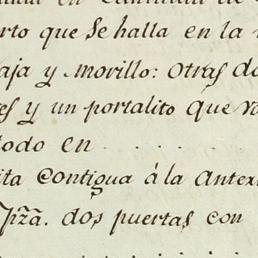 en Cantidad de
rto que se halla en la
aja y morillo: otras do
es y un portalito que va
todo en . . . . .
ita Contigua á la Antex
Jpĩza. dos puertas con